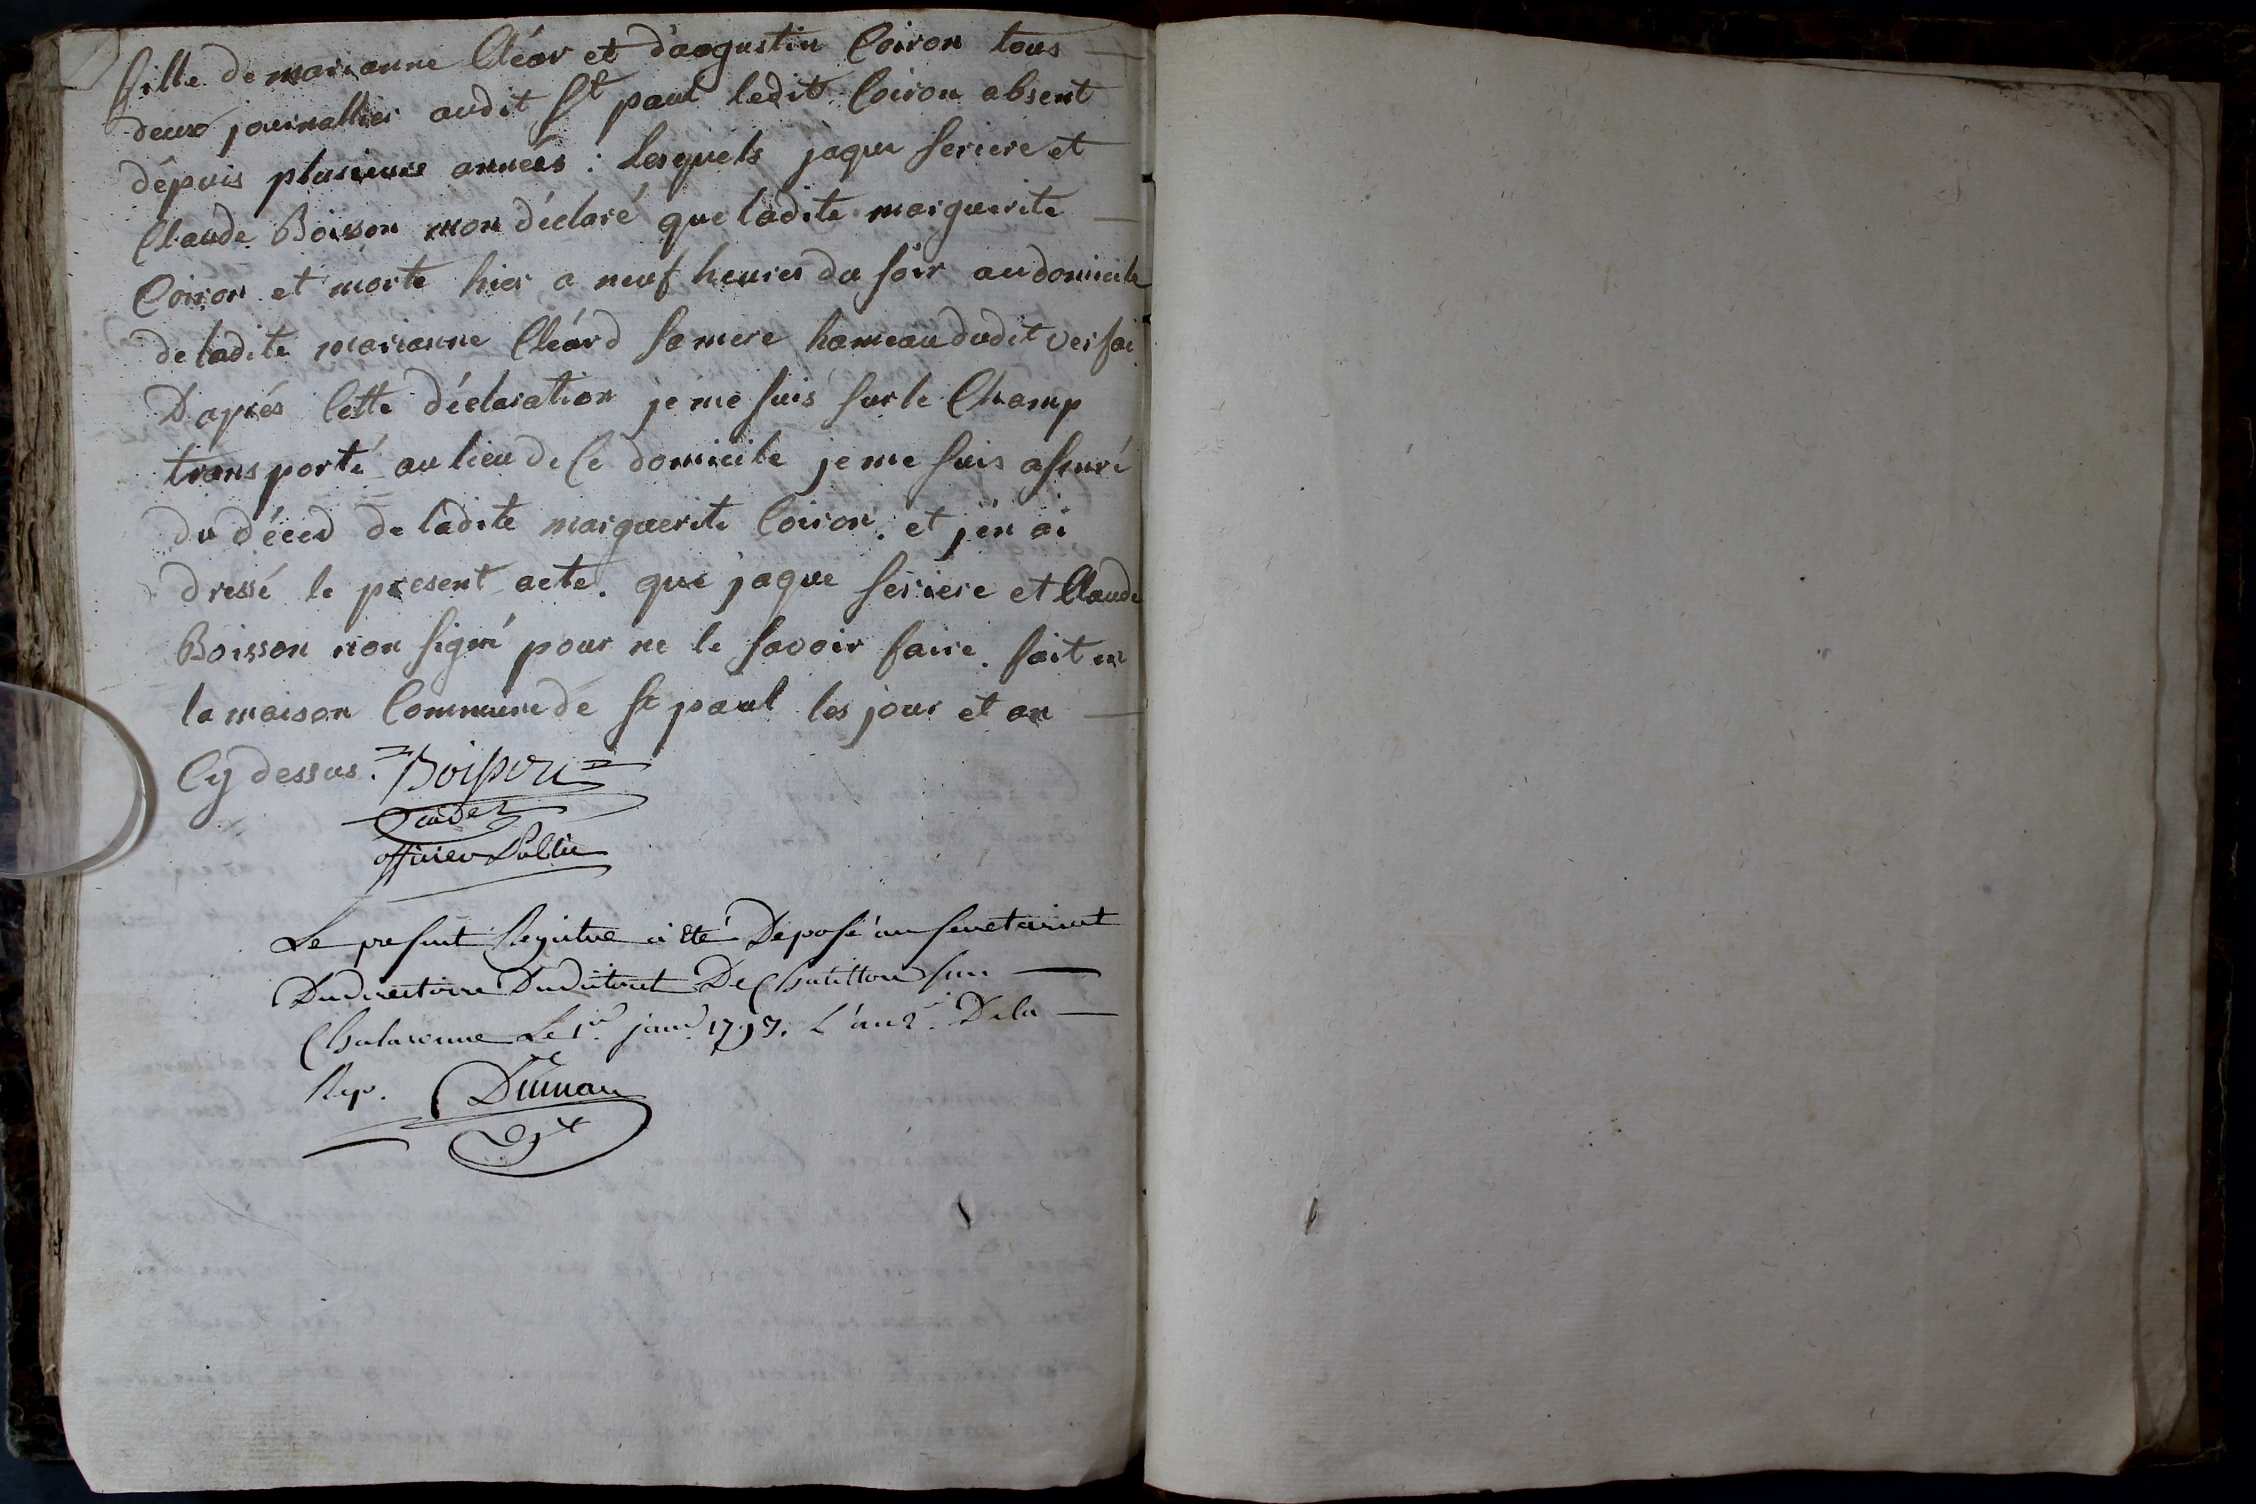 fille de marianne Cléar et d'aogustin Coiron tous
deux journallier audit St paul ledit Coiron absent
dépuis plusieurs années : Lesquels jaque feriere et
Claude Boisson mon déclaré que ladite marguerite
Coiron et morte hier a neuf heures du soir au domicile
de ladite marianne Cléard sa mere hameau dudit versai
D'aprés Cette déclaration je me suis sur le Champ
transporté au lieu de Ce domicile je me suis assuré
du déced de ladite marguerite Coiron. et j'en ai
dressé le present acte. que jaque feriere et Claude
Boisson non signé pour ne le savoir faire. fait en
la maison Commune de St paul les jour et an
Cy dessus. Boisson
Cadet
officier Public
Le present Registre a été Deposé au secretariat
Du directoire Du district De Chatillon sur
Chalaronne Le 1er janv. 1793. L'an 2e. De la
Rep.